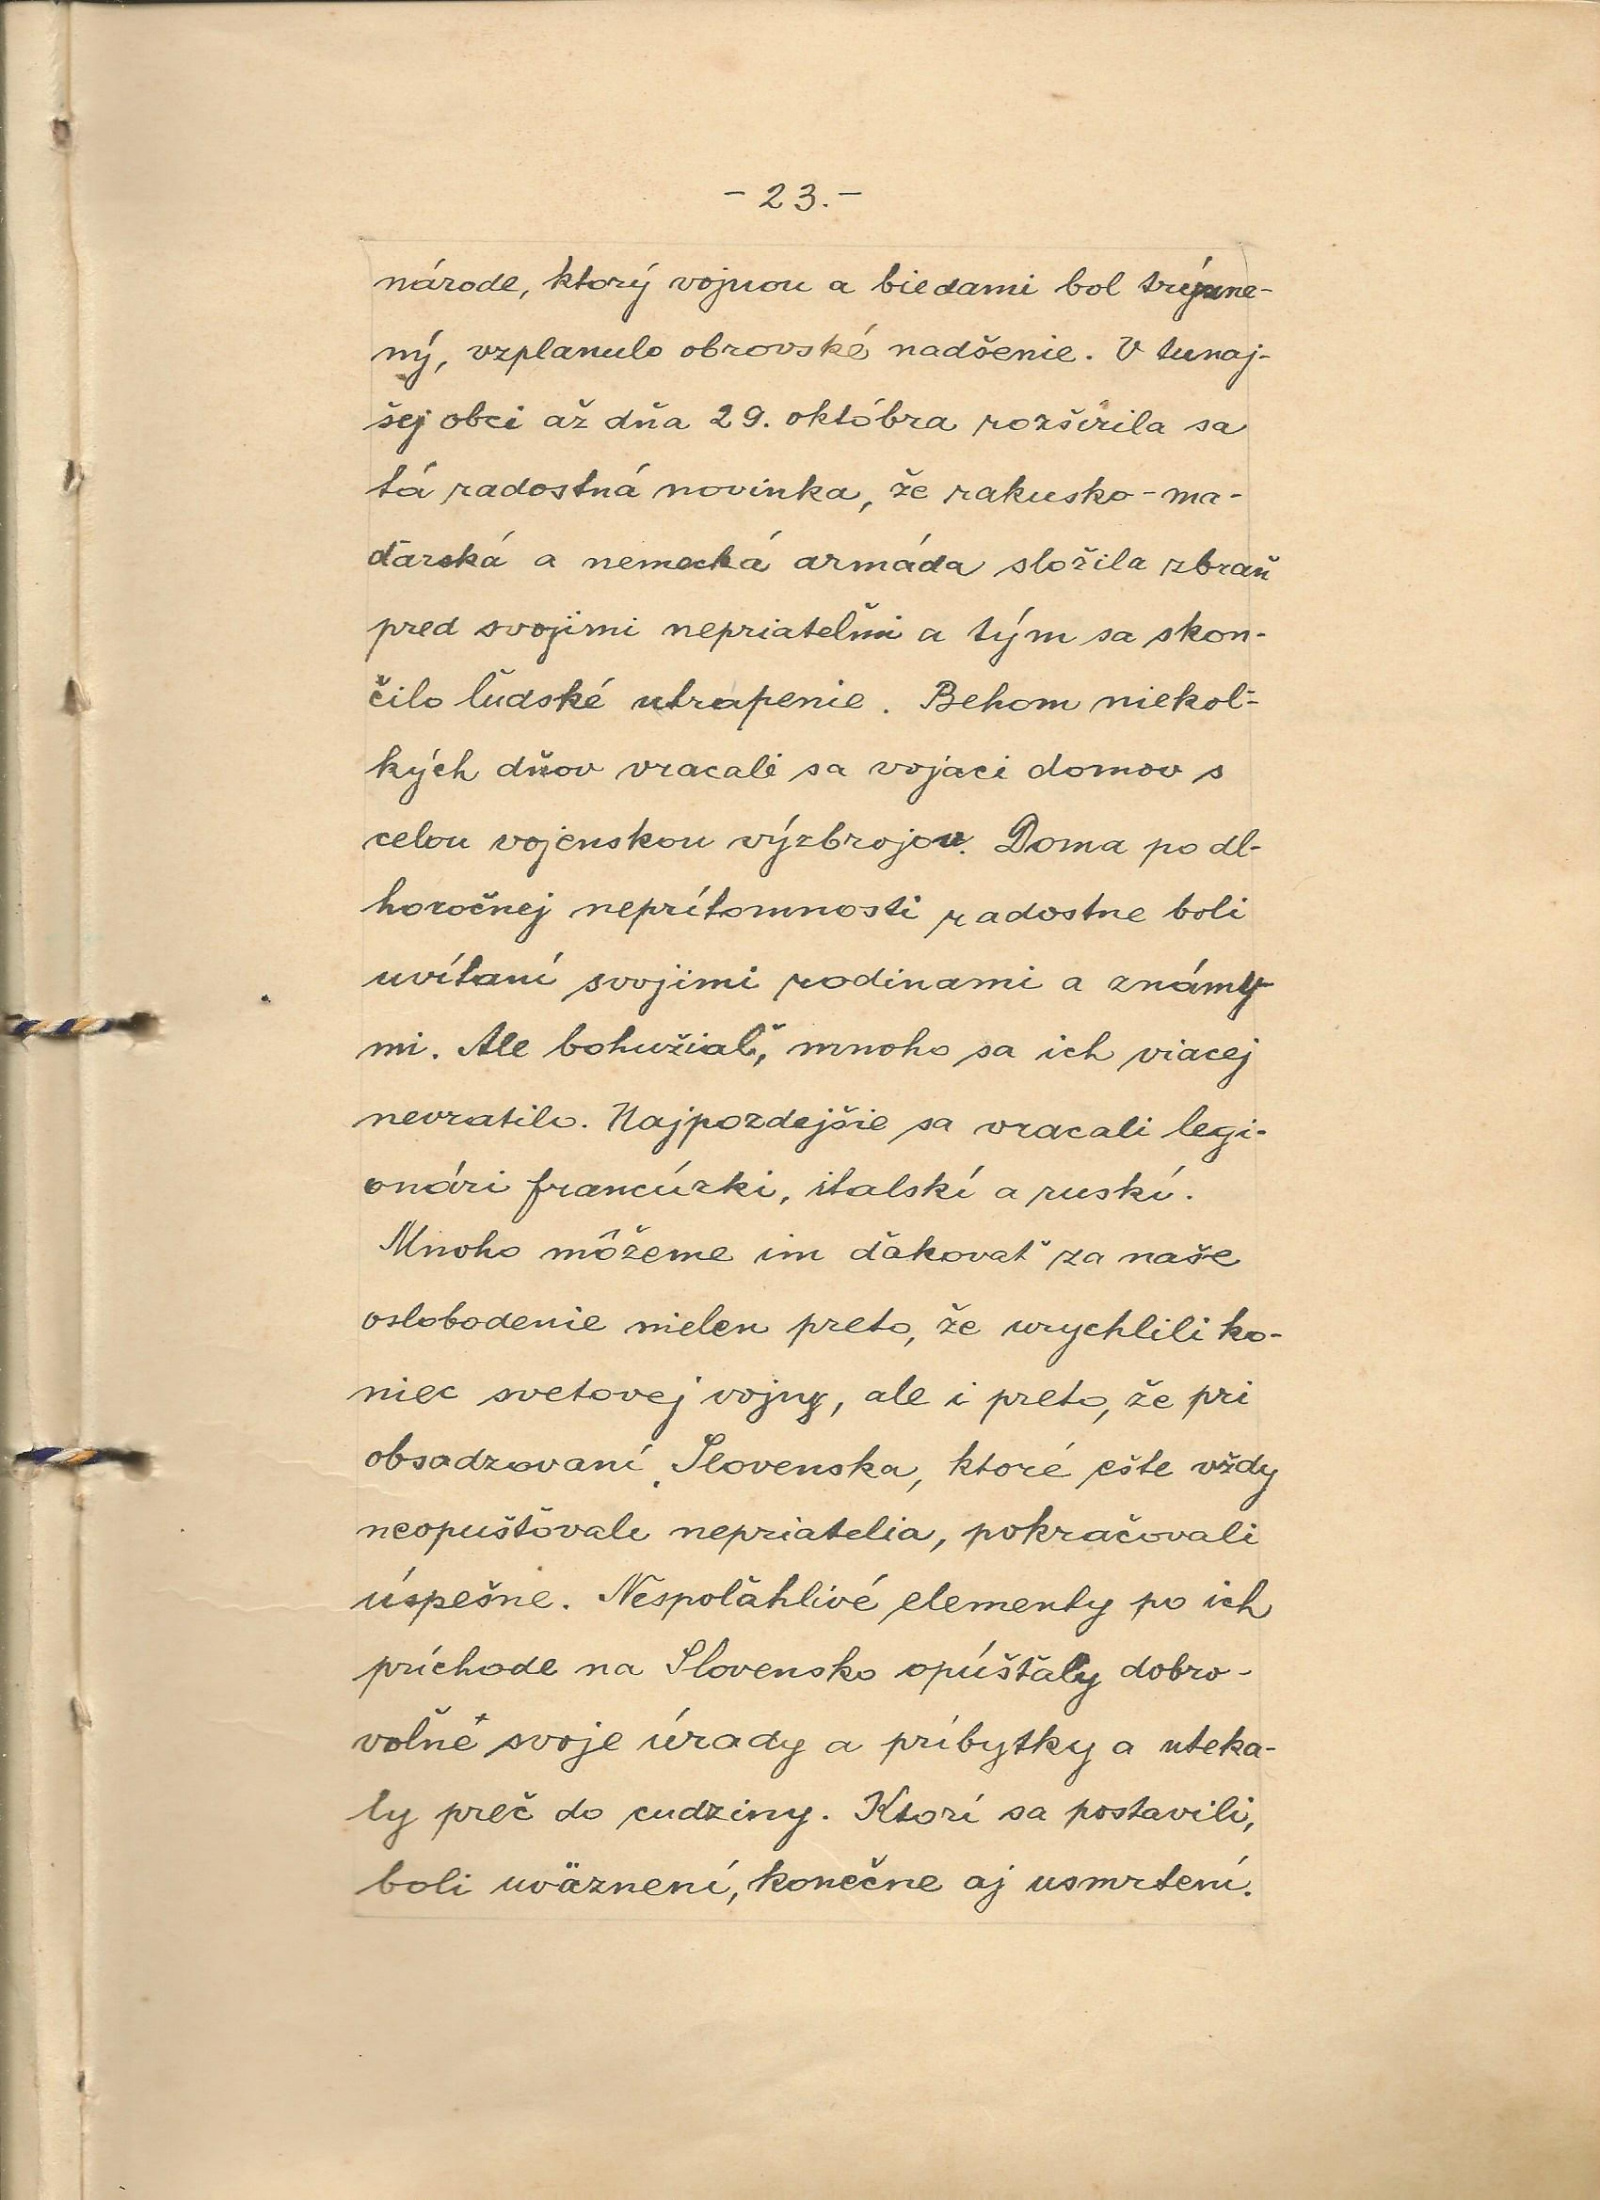 - 23. -
národe, ktorý vojnou a biedami bol trýzne-
ný, vzplanulo obrovské nadšenie. V tunaj-
šej obci až dňa 29. októbra rozšírila sa
tá radostná novinka, že rakusko-ma-
ďarská a nemecká armáda složila zbraň
pred svojimi nepriateľmi a tým sa skon-
čilo ľudské utrapenie. Behom niekoľ-
kých dňov vracali sa vojaci domov s
celou vojenskou výzbrojou. Doma po dl-
horočnej neprítomnosti radostne boli
uvítaní svojimi rodinami a známy-
mi. Ale bohužiaľ, mnoho sa ich viacej
nevratilo. Najpozdejšie sa vracali legi-
onári francúzki, italskí a ruskí.
Mnoho môžeme im ďakovať za naše
oslobodenie nielen preto, že urychlili ko-
niec svetovej vojny, ale i preto, že pri
obsadzovaní Slovenska, ktoré ešte vždy
neopušťovali nepriatelia, pokračovali
úspešne. Nespoľahlivé elementy po ich
príchode na Slovensko opúšťaly dobro-
voľne svoje úrady a príbytky a uteka-
ly preč do cudziny. Ktorí sa postavili,
boli uväznení, konečne aj usmrtení.